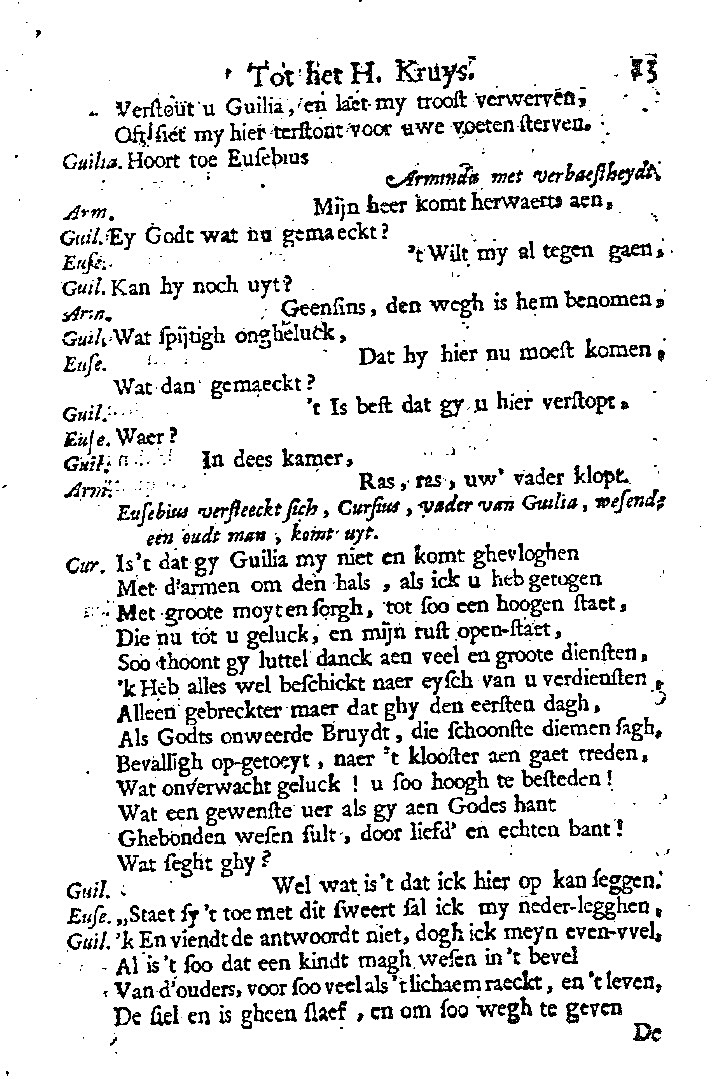 Tot het H. Kruys. 13
Verstout u Guilia, en laet my troost verwerven,
Oft siet my hier terstont voor uwe voeten sterven.
Guilia. Hoort toe Eusebius
Arminda met verbaestheydt.
Arm. Mijn heer komt herwaerts aen,
Guil. Ey Godt wat nu gemaeckt?
Euse. 't Wilt my al tegen gaen,
Guil. Kan hy noch uyt?
Arm. Geensins, den wegh is hem benomen,
Guil. Wat spijtigh ongheluck,
Euse. Dat hy hier nu moest komen,
Wat dan gemaeckt?
Guil. 't Is best dat gy u hier verstopt.
Euse. Waer?
Guil. In dees kamer,
Arm. Ras, ras, uw' vader klopt.
Eusebius versteeckt sich, Cursius, vader van Guilia, wesende
een oudt man, komt uyt.
Cur. Is't dat gy Guilia my niet en komt ghevloghen
Met d'armen om den hals, als ick u heb getogen
Met groote moyt en sorgh, tot soo een hoogen staet,
Die nu tot u geluck, en mijn rust open-staet,
Soo thoont gy luttel danck aen veel en groote diensten,
'k Heb alles wel beschickt naer eysch van u verdiensten,
Alleen gebreckter maer dat ghy den eersten dagh,
Als Godts onweerde Bruydt, die schoonste diemen sagh,
Bevalligh op-getoeyt, naer 't klooster aen gaet treden,
Wat onverwacht geluck ! u soo hoogh te besteden !
Wat een gewenste uer als gy aen Godes hant
Ghebonden wesen sult, door liefd' en echten bant !
Wat seght ghy?
Guil. Wel wat is't dat ick hier op kan seggen.
Euse. „Staet sy 't toe met dit sweert sal ick my neder-legghen,
Guil. 'k En viendt de antwoordt niet, dogh ick meyn even-vvel,
Al is't soo dat een kindt magh wesen in't bevel
Van d'ouders, voor soo veel als 't lichaem raeckt, en 't leven,
De siel en is gheen slaef, en om soo wegh te geven
De